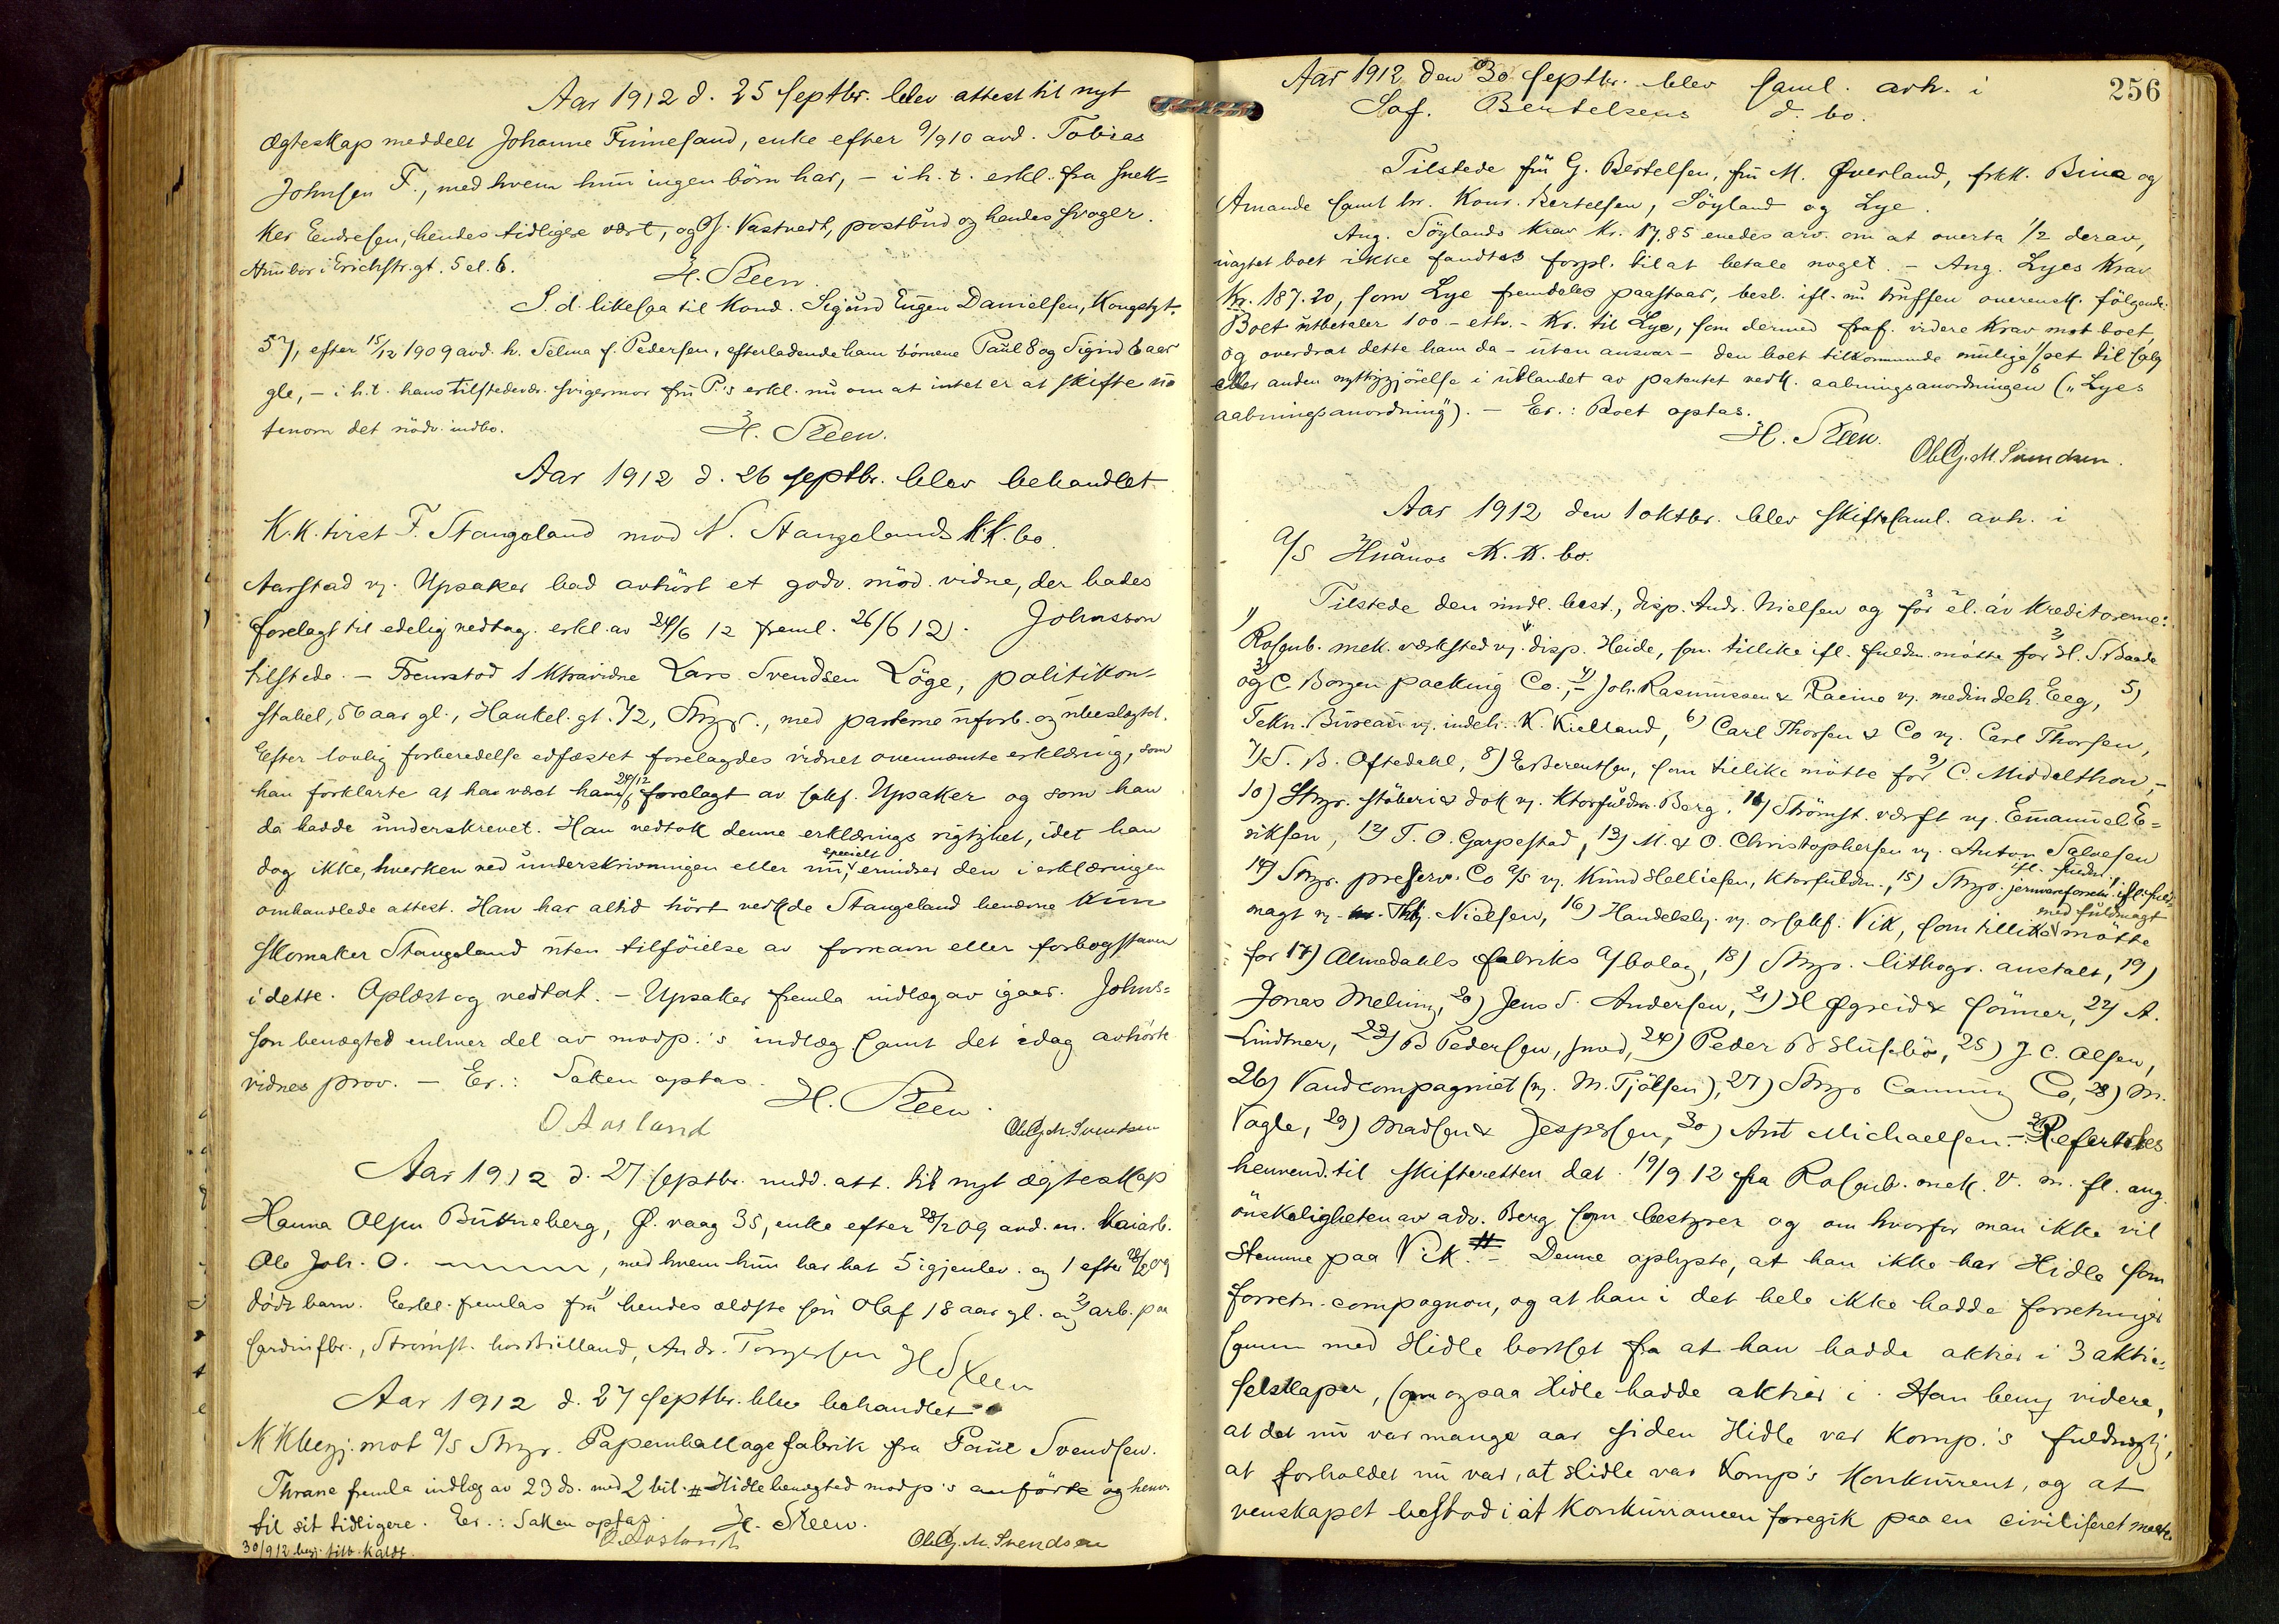 Aar 1912 d. 25 septbr. blev attest til nyt
ægteskap meddelt Johanne Finnesand, enke efter 9/9 10 avd. Tobias
Johnsen F., med hvem hun ingen börn har, – i h. t. erkl. fra snek=
ker Endresen, hendes tidligere vært, og Vastvedt, postbud og hendes svoger.
Hun bor i Erichstr.gt. 5 el. 6.
H. Steen.
S. d. likesaa til Kond. Sigurd Eugen Danielsen, Kongsgt.
57, efter 15/12 1909 avd. h. Selma f. Pedersen, efterladende ham börnene Paul 8 og Sigrid 6 aar
gle, – i h. t. hans tilstedevær. svigermor fru P.'s erkl. nu om at intet er at skifte u=
tenom det nödv. indbo.
H. Steen.
Aar 1912 d. 26 septbr. blev behandlet
K.K. tvist F. Stangeland mod N. Stangelands K.K. bo.
Aarstad v. Upsaker bad avhört et godv. möd. vidne, der bades
forelagt til edelig vedtag. erkl. av 24/6 12 freml. 26/6 12). Johnsson
tilstede. – Fremstod 1 Ktravidne Lars Svendsen Löge, politikon=
stabel, 56 aar gl., Haukel. gt. 72, Stvgr., med parterne uforb. og ubeslegtet.
Efter lovlig forberedelse edfæstet forelagdes vidnet ovennævnte erklæring, som
han forklarte at ha været ham 24/6 12 forelagt av sakf. Upsaker og som han
da hadde underskrevet. Han vedtok denne erklærings rigtighet, idet han
dog ikke, hverken ved underskrivningen eller nu, specielt erindrer den i erklæringen
omhandlede attest. Han har altid hört vedkde Stangeland benævne kun
skomaker Stangeland uten tilföielse av fornavn eller forbogstaver
i dette. Oplæst og vedtat. – Upsaker fremla indlæg av igaar. Johns=
son benegted enhver del av modp.'s indlæg samt det idag avhörte
vidnes prov. – Er.: Saken optas.
H. Steen.
O. Aasland
Ole G. M. Svendsen
Aar 1912 d. 27 septbr. medd. att. til nyt ægteskap
Hanna Olsen Bukneberg, Ø. vaag 35, enke efter 28/2 09 avd. m. Kaiarb.
Ole Joh. O. , med hvem hun har hat 5 igjenlev. og 1 efter 28/2 09
dödt barn. Erkl. fremlas fra 1) hendes ældste sön Olaf 18 aar gl. og 2) arb. paa
sardinfbr., Strömst. hos Bielland, Andr. Torgersen
H Steen
Aar 1912 d. 27 septbr. blev behandlet
K Kbegj. mot a/s Stvgr. Papemballagefabrik fra Paul Svendsen.
Thrane fremla indlæg av 23 ds. med 2 bil. # Hidle benegted modp's anförte og henv.
til sit tidligere. Er.: Saken optas. H. Steen.
O. Aasland
Ole G. M. Svendsen
30/9 12 begj. tilb. kaldt.
256
Aar 1912 den 30 septbr. blev saml. avh. i
Sof. Bertelsens d. bo.
Tilstede fru G. Bertelsen, fru M. Øverland, frkk. Bina og
Amanda samt hr. Konr. Bertelsen, Söyland og Lye.
Ang. Söylands krav kr. 17.85 enedes arv. om at overta 1/2 derav,
uagtet boet ikke fandtes forpl. til at betale noget. – Ang. Lyes krav
Kr. 187.20, som Lye fremdeles paastaar, besl. ifl. nu truffen overensk. fölgende:
Boet utbetaler 100 – ett. – Kr. til Lye, som dermed fraf. videre krav mot boet,
og overdrat dette ham da – uten ansvar – den boet tilkommende mulige 1/6 part til salg
eller anden nyttiggjörelse i utlandet av patentet vedk. aabningsanordningen („Lyes
aabningsanordning"). – Er.: Boet optas.
H. Steen.
Ole G. M. Svendsen.
Aar 1912 den 1 oktbr. blev skiftesaml. avh. i
a/s Huanos K. K. bo.
Tilstede den midl. best., disp. Andr. Nielsen og för el. av kreditorerne:
1) Rosenb. mek. værksted v. disp. Heide, som tillike ifl. fuldm. mötte for 2) H. S. Baade
og 3) C. Borgen packing Co., – 4) Joh. Rasmussen & Racine v. medindeh. Eeg, 5)
Tekn. Bureau v. indeh. K. Kielland, 6) Carl Thorsen & Co v. Carl Thorsen,
7) S. B. Oftedahl, 8) E. Berentsen, som tillike mötte for 9) C. Middelthon, –
10) Stvgr. stöberi & dok v. Ktorfuldm. Berg, 11) Strömst. værft v. Emanuel E=
riksen, 12) T. O. Garpestad, 13) M. & O. Christophersen v. Anton Salvesen
ifl. fuldm.,
14) Stvgr. preserv. Co a/s v. Knud Helliesen, Ktorfuldm., 15) Stvgr. jernvareforretn. ifl. fuld=
magt v. Thj. Nielsen, 16) Handelsbj. v. orsakf. Vik, som tillike med fuldmagt mötte
for 17) Almedahls fabriks a/bolag, 18) Stvgr. lithogr. anstalt, 19)
Jonas Meling, 20) Jens S. Andersen, 21) H Øgreid & sönner, 22) A.
Lindtner, 23) B Pedersen, smed, 24) Peder B Husebö, 25) J. C. Olsen,
26) Vandcompagniet (v. M. Tjölsen), 27) Stvgr Canning Co, 28) M.
Vagle, 29) Madsen & Jespersen, 30) Ant Michaelsen. – Refertes
henvend. til skifteretten dat. 19/9 12 fra Rosenb. mek. V. m. fl. ang.
önskeligheten av adv. Berg som bestyrer og om hvorfor man ikke vil
stemme paa Vik. – Denne oplyste, at han ikke har Hidle som
forretn. compagnon, og at han i det hele ikke hadde forretninger
sammen med Hidle bortset fra at han hadde aktier i 3 aktie=
selskaper, som ogsaa Hidle hadde aktier i. Han bem. videre,
at det nu var mange aar siden Hidle var Komp.'s fuldmægtig,
at forholdet nu var, at Hidle var Komp's Konkurrent, og at
venskapet bestod i at konkurrancen foregik paa en civiliseret maate